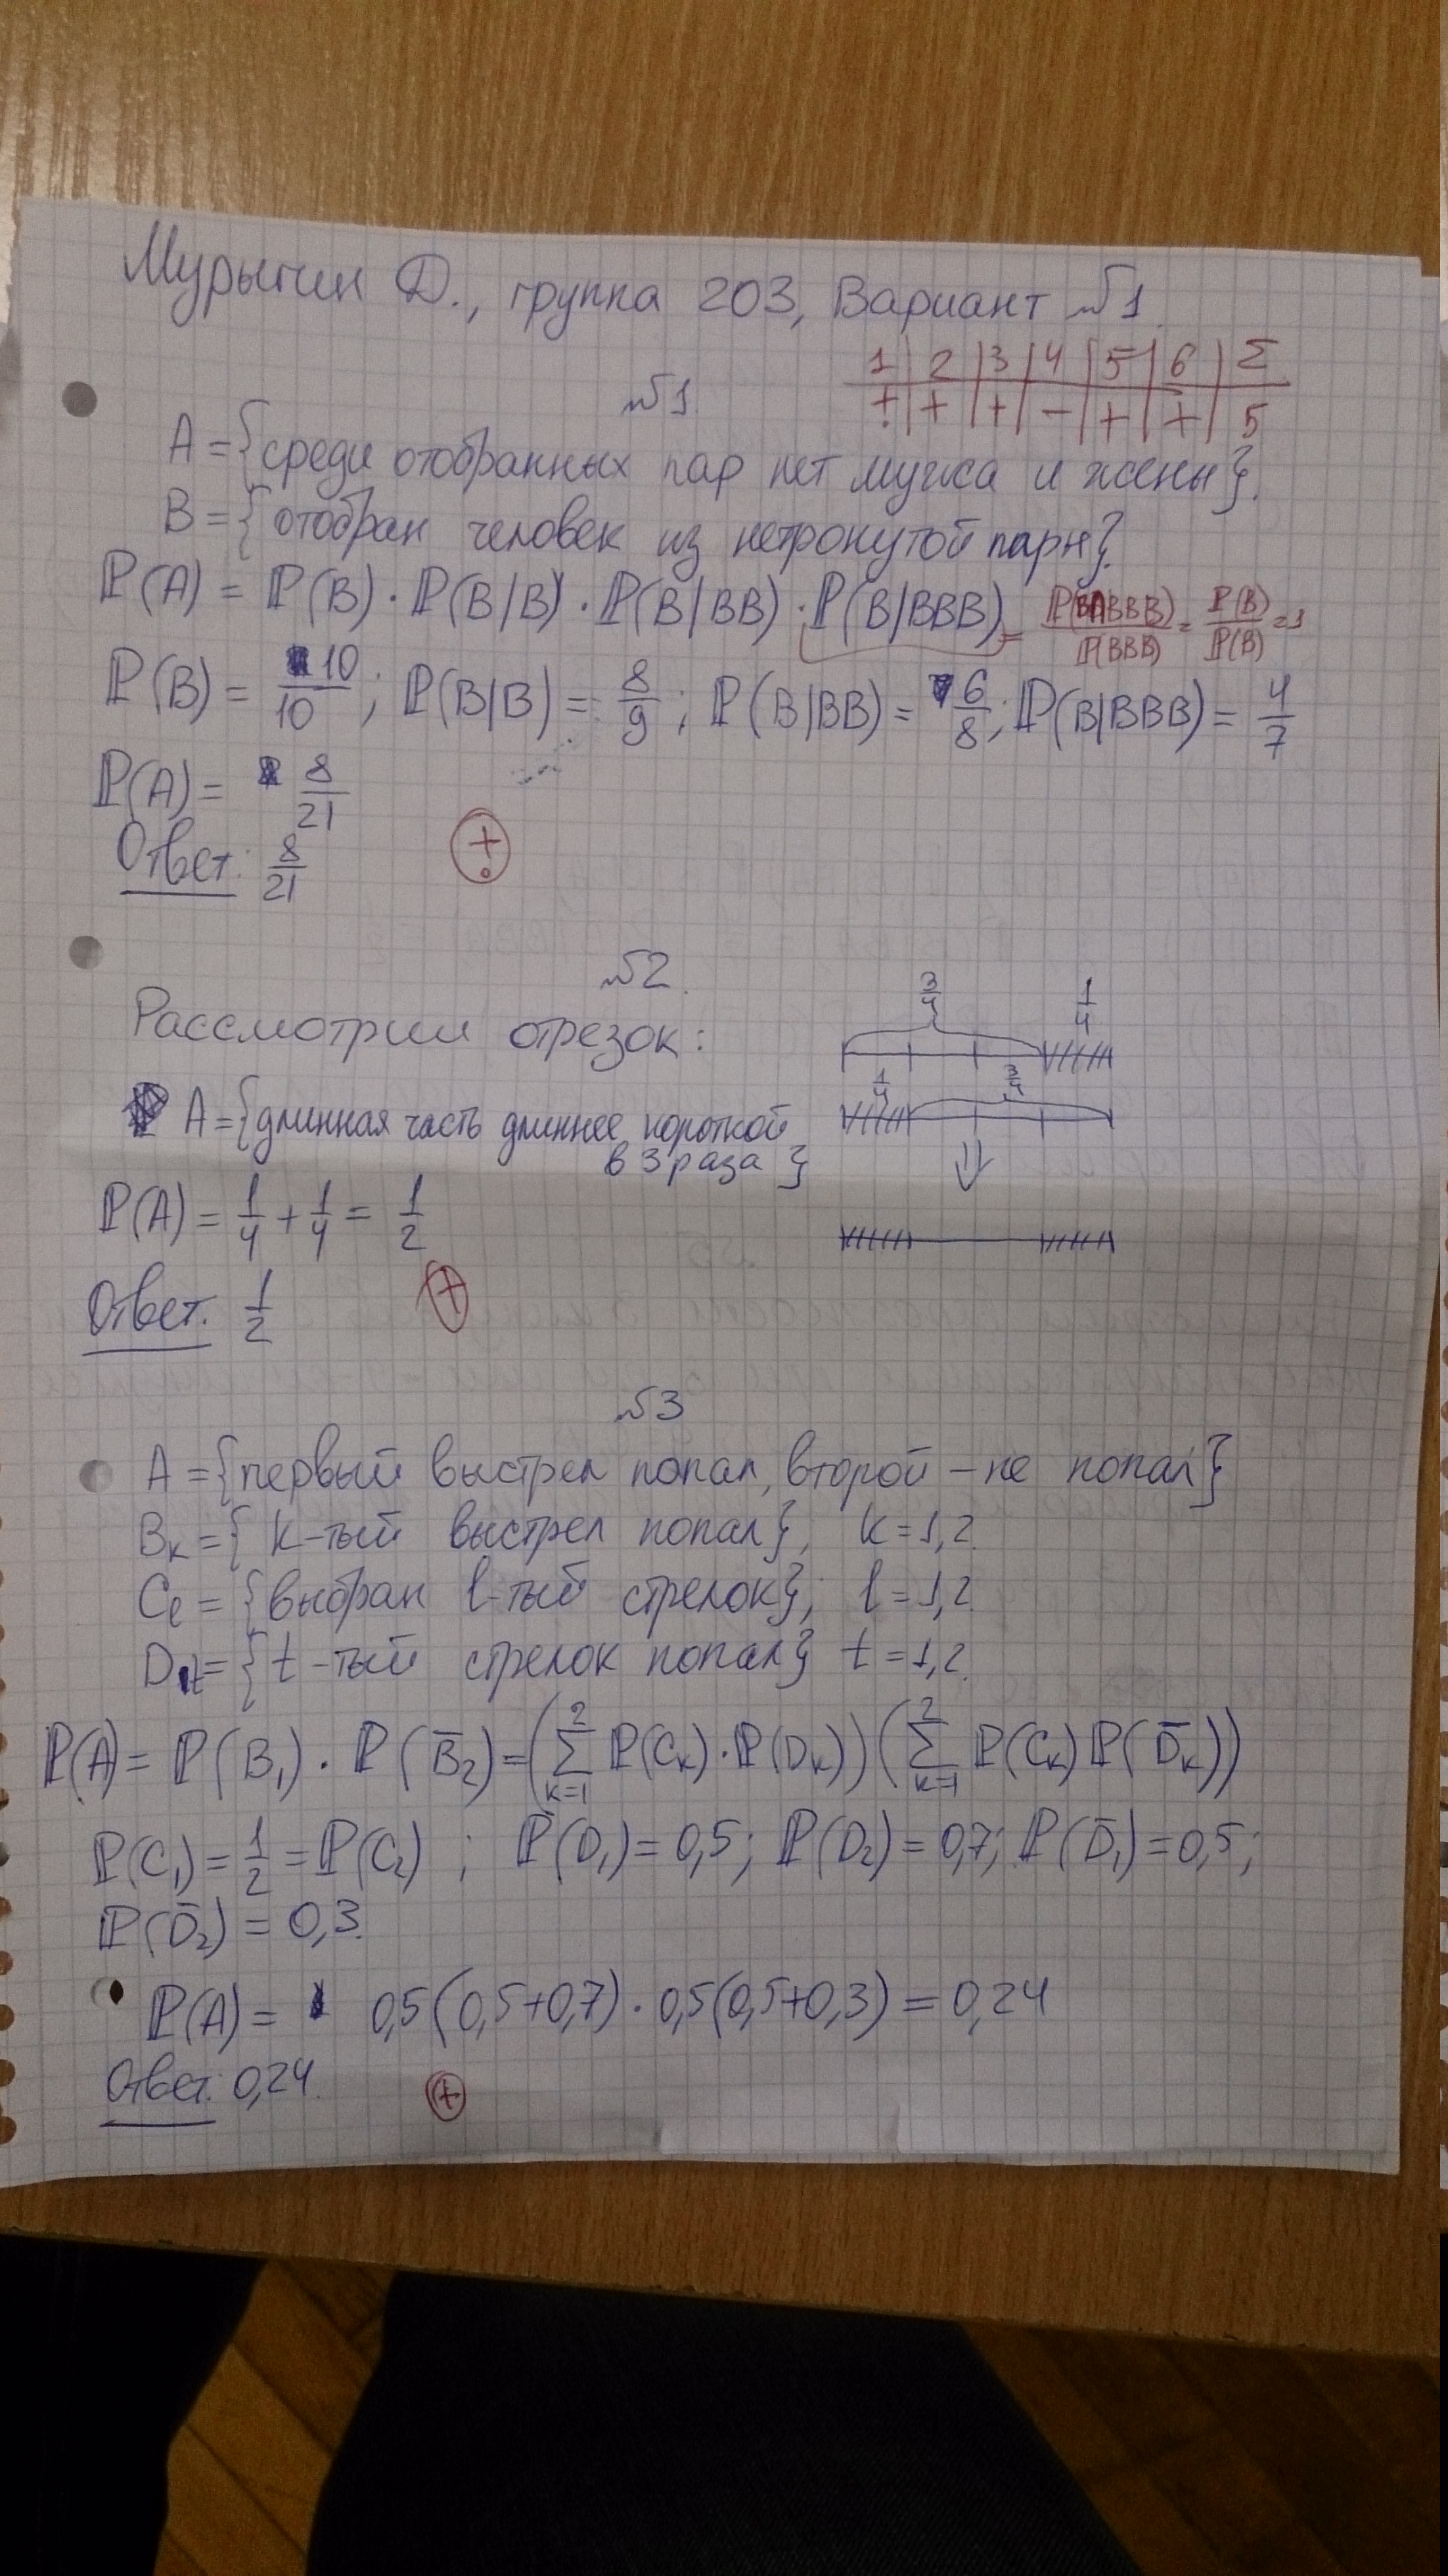 Мурыгин Д., группа 203, Вариант №1.
1 | 2 | 3 | 4 | 5 | 6 | Σ
+. | + | + | − | + | + | 5
№1
A = {среди отобранных пар нет мужа и жены}.
B = {отобран человек из нетронутой пары}.
ℙ(A) = ℙ(B) · ℙ(B/B) · ℙ(B/BB) · ℙ(B/BBB) = ℙ(B∩BBB)/ℙ(BBB) = ℙ(B)/ℙ(B) = 1
ℙ(B) = 10/10 ; ℙ(B|B) = 8/9 ; ℙ(B|BB) = 6/8; ℙ(B|BBB) = 4/7
ℙ(A) = 8/21
Ответ: 8/21
+.
№2.
Рассмотрим отрезок:
3/4 1/4
1/4 3/4
A = {длинная часть длиннее короткой
в 3 раза}
ℙ(A) = 1/4 + 1/4 = 1/2
Ответ. 1/2
+
№3
A = {первый выстрел попал, второй – не попал}
Bₖ = {k-тый выстрел попал}, k = 1,2.
Cₗ = {выбран l-тый стрелок}; l = 1,2.
Dₜ = {t-тый стрелок попал} t = 1,2.
ℙ(A) = ℙ(B₁) · ℙ(B̄₂) = (∑ₖ₌₁² ℙ(Cₖ) · ℙ(Dₖ)) (∑ₖ₌₁² ℙ(Cₖ) ℙ(D̄ₖ))
ℙ(C₁) = 1/2 = ℙ(C₂) ; ℙ(D₁) = 0,5; ℙ(D₂) = 0,7; ℙ(D̄₁) = 0,5;
ℙ(D̄₂) = 0,3.
ℙ(A) = 0,5(0,5+0,7) · 0,5(0,5+0,3) = 0,24
Ответ: 0,24.
+